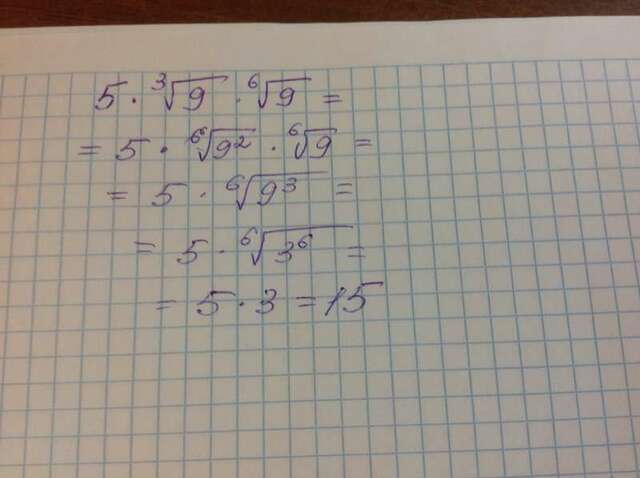 5 · ³√9 · ⁶√9 =
= 5 · ⁶√9² · ⁶√9 =
= 5 · ⁶√9³ =
= 5 · ⁶√3⁶ =
= 5 · 3 = 15